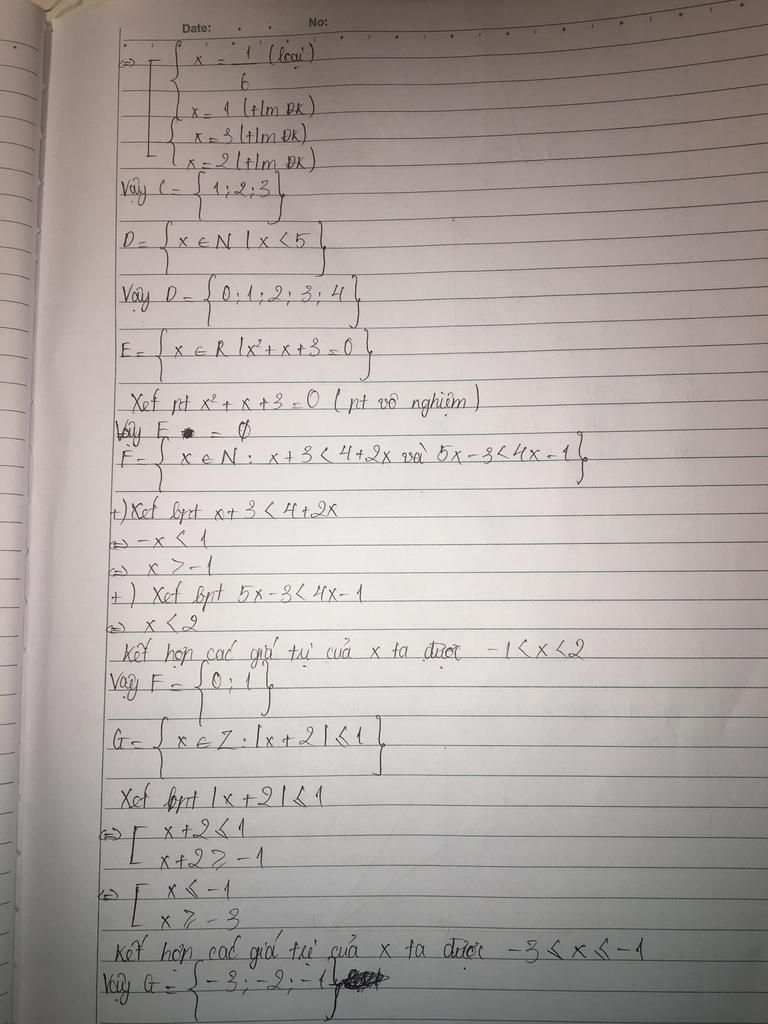 Date: No:
⇔ [ { x = 1/6 (loại)
x = 1 (t/m ĐK)
{ x = 3 (t/m ĐK)
x = 2 (t/m ĐK)
Vậy C = {1; 2; 3}
D = {x ∈ N | x < 5}
Vậy D = {0; 1; 2; 3; 4}
E = {x ∈ R | x² + x + 3 = 0}
Xét pt x² + x + 3 = 0 (pt vô nghiệm)
Vậy E = ∅
F = {x ∈ N : x + 3 < 4 + 2x và 5x - 3 < 4x - 1}
+) Xét bpt x + 3 < 4 + 2x
⇔ -x < 1
⇔ x > -1
+) Xét bpt 5x - 3 < 4x - 1
⇔ x < 2
Kết hợp các giá trị của x ta được -1 < x < 2
Vậy F = {0; 1}
G = {x ∈ Z : |x + 2| ≤ 1}
Xét bpt |x + 2| ≤ 1
⇔ [ x + 2 ≤ 1
x + 2 ≥ -1
⇔ [ x ≤ -1
x ≥ -3
Kết hợp các giá trị của x ta được -3 ≤ x ≤ -1
Vậy G = {-3; -2; -1}